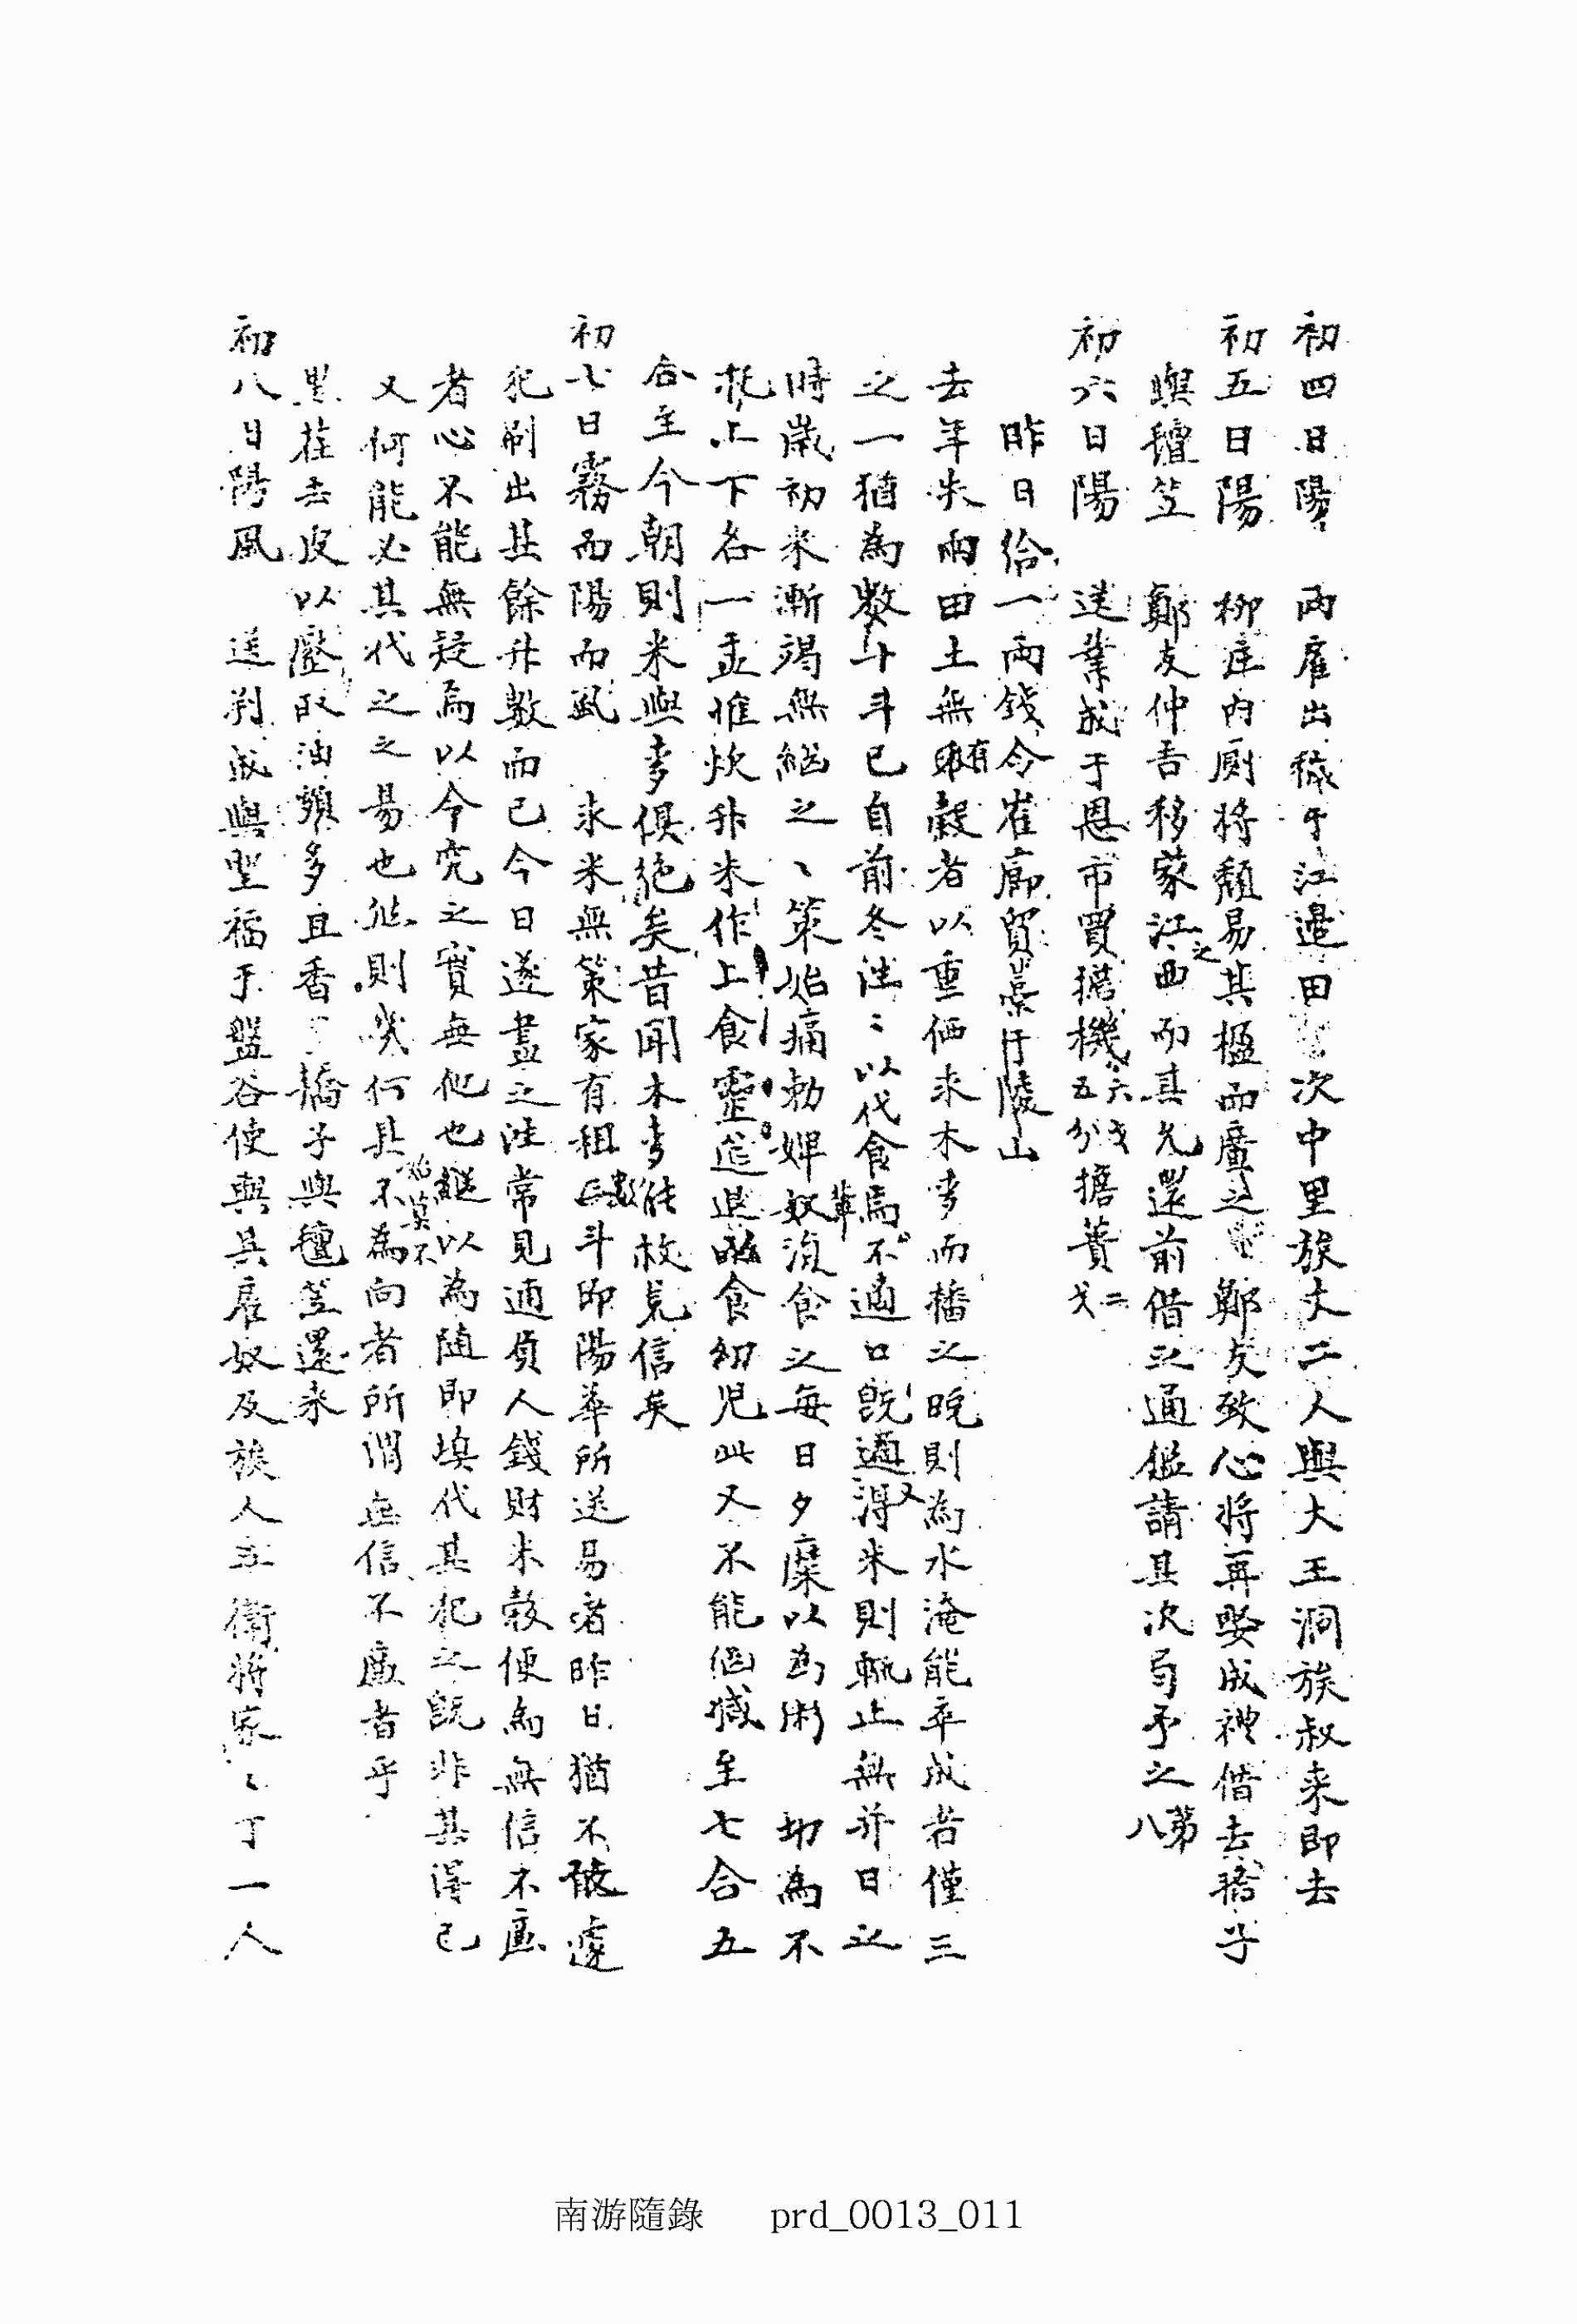 初四日陽 兩雇出穢于江邊田 次中里族丈二人與大王洞族叔來即去
初五日陽 柳庄內廁將頹易其楹而廣之 鄭友致心將再娶成禮借去
與氊笠 鄭友仲吉移家江之西而其兄還前借之通鑑請其次局予之第八
初六日陽 送業成于恩市買 機六戈五分 簣二戈
昨日給一兩錢令崔廊貿 于陵山
去年失雨田土無賴有穀者以重価求木麥而播之晩則為水淹能卒成者僅三
之一猶為數斗斗已自前冬往ミ以代食焉不適口旣適又得米則輒止無并日之
時歲初米漸竭無継之ミ策始痛勅婢奴輩 食之每日夕糜以為術 切為不
托上下各一盂惟炊升米作上食靈筵退 食幼兒此又不能 減至七合五
合至今朝則米與麥俱絶矣昔聞木麥能救 信矣
初七日霧而陽而風 求米無策家有租 數斗即陽華所送易者昨日猶不敢遽
犯刷出其餘升數而已今日遂盡之 常見逋負人錢財米穀便為無信不廉
者心不能無疑焉以今究之實無他也繼以為随即填代其犯之旣非其得已
又何能必其代之之易也然則幾何其不始莫不為向者所謂無信不廉者乎
里 去皮以壓取油頗多且香 橋子與氊笠還來
初八日陽風 送判成與聖福于盤谷使輿其雇奴及族人五衛將家ミ丁一人
南游隨錄 prd_0013_011